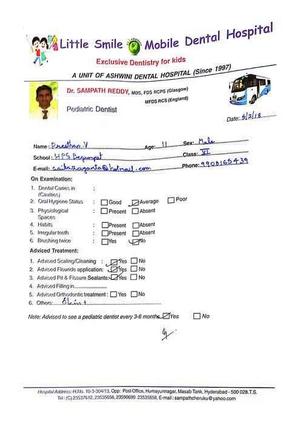 Little Smile Mobile Dental Hospital
Exclusive Dentistry for kids
A UNIT OF ASHWINI DENTAL HOSPITAL (Since 1997)
Dr. SAMPATH REDDY, MDS, FDS RCPS (Glasgow)
MFDS RCS (England)
Pediatric Dentist
Date:
Name: V Age: 11 Sex: Male
School: HPS Begumpet Class: VI
E-mail: Phone:
On Examination:
1. Dental Caries in :
(Cavities)
2. Oral Hygiene Status : Good Average Poor
3. Physiological : Present Absent
Spaces
4. Habits : Present Absent
5. Irregular teeth : Present Absent
6. Brushing twice : Yes No
Advised Treatment:
1. Advised Scaling/Cleaning : Yes No
2. Advised Fluoride application : Yes No
3. Advised Pit & Fissure Sealants: Yes No
4. Advised Filling in
5. Advised Orthodontic treatment : Yes No
6. Others:
Note: Advised to see a pediatric dentist every 3-6 months Yes No
Hospital Address: H.No. 10-3-304/13, Opp: Post Office, Humayunnagar, Masab Tank, Hyderabad - 500 028.T.S.